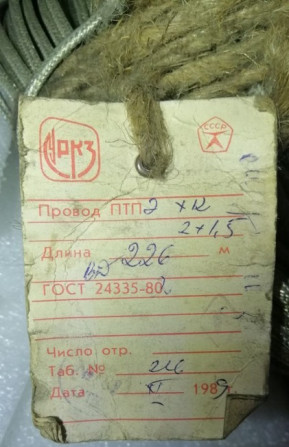 АРКЗ
СССР
Провод ПТП
2×1,5
Длина 226 м
ГОСТ 24335-80
Число отр.
Таб. № 216
Дата XI 1989